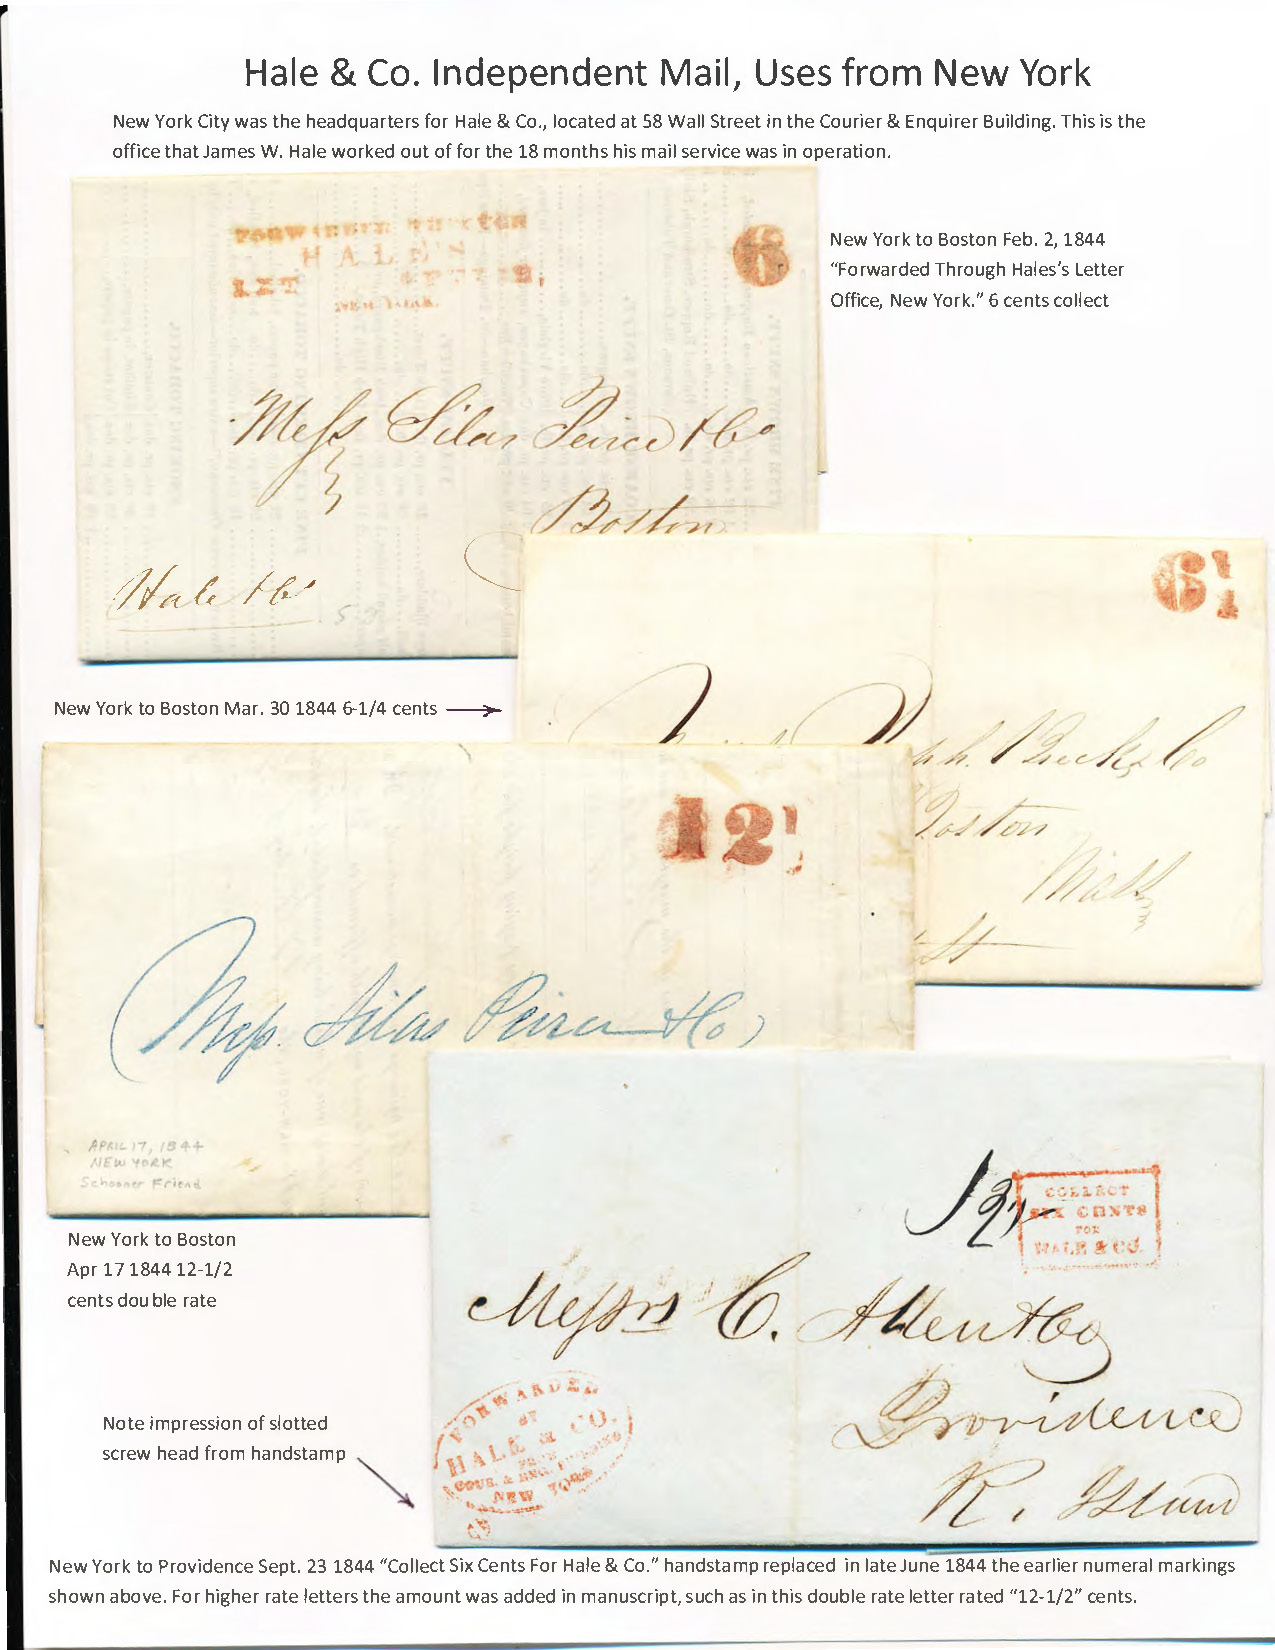 Hale & Co. Independent Mail, Uses from New York
New York City was the headquarters for Hale & Co., located at 58 Wall Street in the Courier & Enquirer Building. This is the
office that James W. Hale worked out of for the 18 months his mail service was in operation.
HALE'S
NEW YORK.
6
New York to Boston Feb. 2, 1844
"Forwarded Through Hales's Letter
Office, New York." 6 cents collect
Mess Silas Peirce & Co
Boston
Hale & Co
6 1/4
New York to Boston Mar. 30 1844 6-1/4 cents
Co
Boston
Mass
12 1/2
Mess. Silas Peirce & Co
APRIL 17, 1844
NEW YORK
Schooner Friend
New York to Boston
Apr 17 1844 12-1/2
cents double rate
12 1/2
COLLECT
SIX CENTS
FOR
HALE & CO.
Messrs C. Allen & Co
Providence
R. Island
FORWARDED
BY
HALE & CO.
FROM
COUR. & ENQ. BUILDING
NEW YORK
Note impression of slotted
screw head from handstamp
New York to Providence Sept. 23 1844 "Collect Six Cents For Hale & Co." handstamp replaced in late June 1844 the earlier numeral markings
shown above. For higher rate letters the amount was added in manuscript, such as in this double rate letter rated "12-1/2" cents.